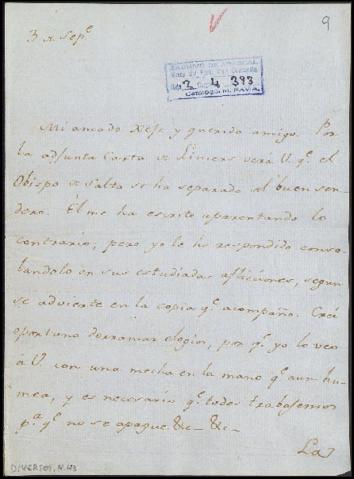 9
3 de Sep.e
ARCHIVO DE ABASCAL
2 4 393
Mi amado Xefe y querido amigo. Por
la adjunta Carta de Liniers verá V. q.e el
Obispo de Salta se ha separado del buen sen-
dero. El me ha escrito aparentando lo
contrario; pero yo le he respondido conso-
landolo en sus estudiadas aflicciones, segun
se advierte en la copia q.e acompaño. Crei
oportuno derramar elogios, por q.e yo lo veo
à V. con una mecha en la mano q.e aun hu-
mea, y es necesario q.e todos trabajemos
p.a q.e no se apague. &c- &c-
La
DIVERSOS, N. 43